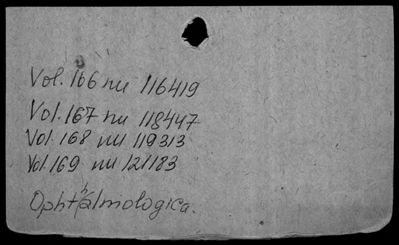 Vol. 166 nu 116419
Vol. 167 nu 118447
Vol. 168 nu 119313
Vol. 169 nu 121183
Ophthalmologica.